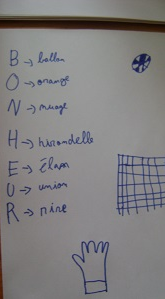 B → ballon
O → orange
N → nuage
H → hirondelle
E → Élan
U → union
R → rire